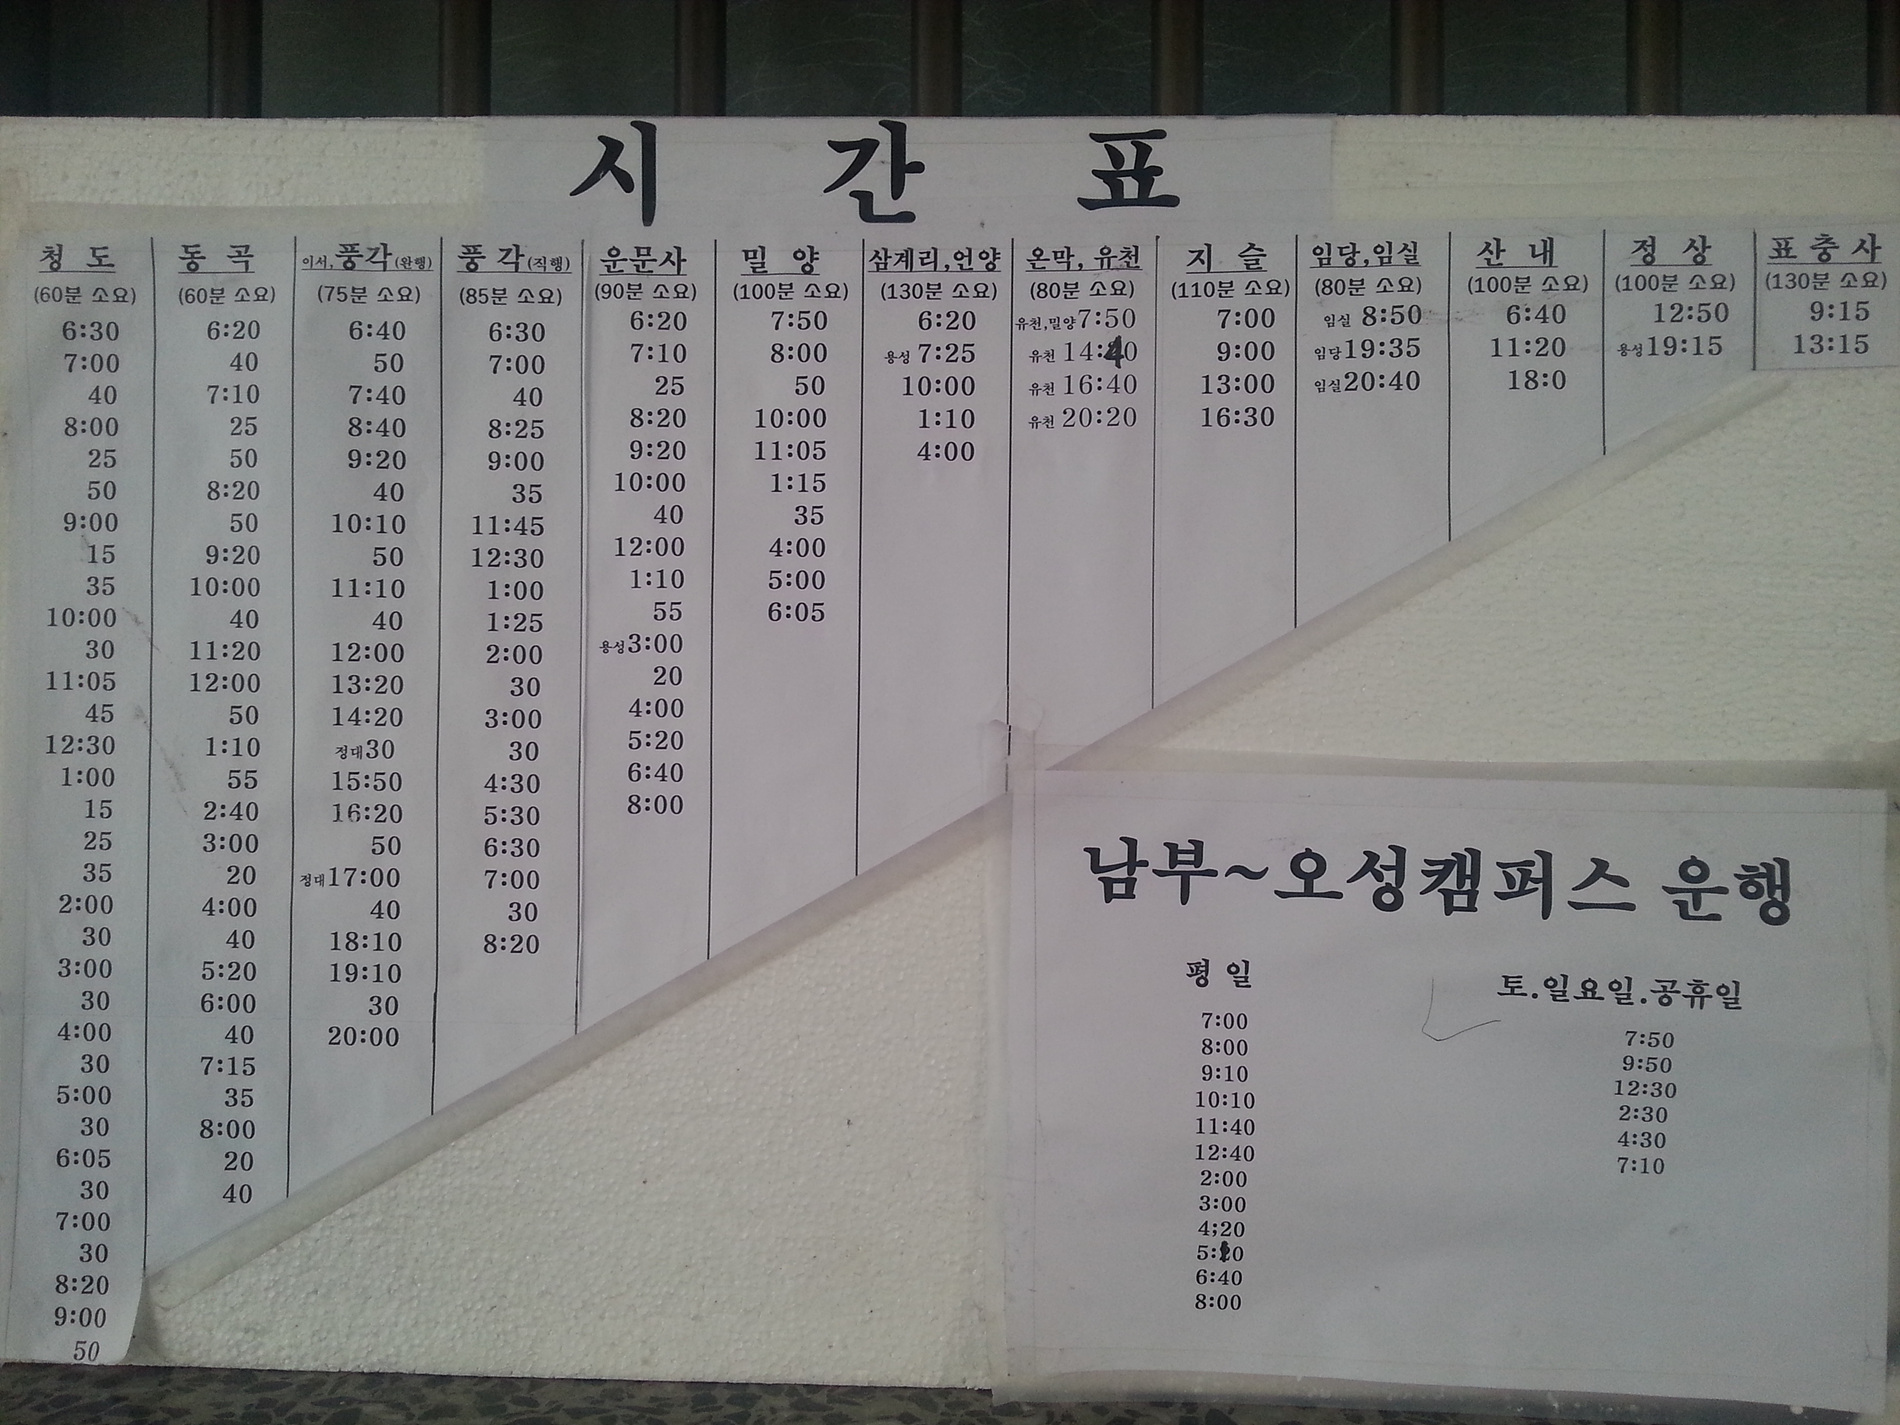 시 간 표
청 도
(60분 소요)
6:30
7:00
40
8:00
25
50
9:00
15
35
10:00
30
11:05
45
12:30
1:00
15
25
35
2:00
30
3:00
30
4:00
30
5:00
30
6:05
30
7:00
30
8:20
9:00
50
동 곡
(60분 소요)
6:20
40
7:10
25
50
8:20
50
9:20
10:00
40
11:20
12:00
50
1:10
55
2:40
3:00
20
4:00
40
5:20
6:00
40
7:15
35
8:00
20
40
이서,풍각(완행)
(75분 소요)
6:40
50
7:40
8:40
9:20
40
10:10
50
11:10
40
12:00
13:20
14:20
정대30
15:50
16:20
50
정대17:00
40
18:10
19:10
30
20:00
풍 각(직행)
(85분 소요)
6:30
7:00
40
8:25
9:00
35
11:45
12:30
1:00
1:25
2:00
30
3:00
30
4:30
5:30
6:30
7:00
30
8:20
운문사
(90분 소요)
6:20
7:10
25
8:20
9:20
10:00
40
12:00
1:10
55
용성3:00
20
4:00
5:20
6:40
8:00
밀 양
(100분 소요)
7:50
8:00
50
10:00
11:05
1:15
35
4:00
5:00
6:05
삼계리,언양
(130분 소요)
6:20
용성 7:25
10:00
1:10
4:00
온막, 유천
(80분 소요)
유천,밀양7:50
유천 14:40
유천 16:40
유천 20:20
지 슬
(110분 소요)
7:00
9:00
13:00
16:30
임당,임실
(80분 소요)
임실 8:50
임당19:35
임실20:40
산 내
(100분 소요)
6:40
11:20
18:0
정 상
(100분 소요)
12:50
용성19:15
표 충 사
(130분 소요)
9:15
13:15
남부~오성캠퍼스 운행
평 일
7:00
8:00
9:10
10:10
11:40
12:40
2:00
3:00
4;20
6:40
8:00
토.일요일.공휴일
7:50
9:50
12:30
2:30
4:30
7:10